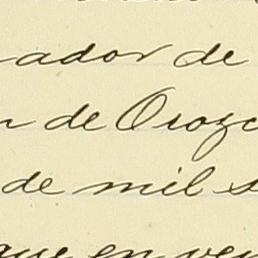 ador de
de Orozc
de mil s
que en ve